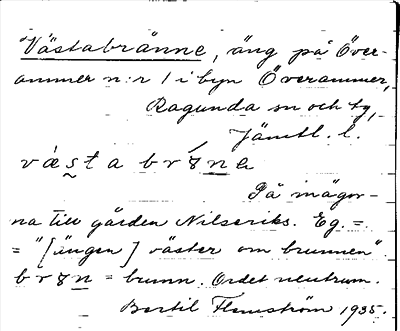 Västabränne, äng på Över-
ammer n:r 1 i byn Överammer,
Ragunda sn och tg,
Jämtl. l.
väs̯ta brɤ́n̲e
På inägor-
na till gården Nilseriks. Eg. =
= "[ängen] väster om brunnen".
brɤn̲ = brunn. Ordet neutrum.
Bertil Flemström 1935.